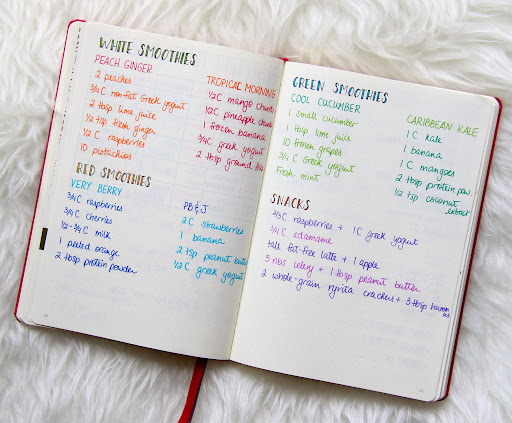 WHITE SMOOTHIES
PEACH GINGER
2 peaches
3/4 C non-fat Greek yogurt
2 tbsp lime juice
1/2 tsp fresh ginger
1/2 C raspberries
10 pistachios
TROPICAL MORNING
1/2 C mango chunks
1/2 C pineapple chunks
1 frozen banana
3/4 C greek yogurt
2 tbsp ground
RED SMOOTHIES
VERY BERRY
3/4 C raspberries
3/4 C cherries
1/2-3/4 C milk
1 peeled orange
2 tbsp protein powder
PB & J
2 C strawberries
1 banana
2 tsp peanut butter
1/2 C greek yogurt
GREEN SMOOTHIES
COOL CUCUMBER
1 small cucumber
1 tbsp lime juice
10 frozen grapes
3/4 C Greek yogurt
Fresh mint
CARIBBEAN KALE
1 C kale
1 banana
1 C mangoes
2 tbsp protein pow
1/2 tsp coconut
extract
SNACKS
2/3 C raspberries + 1 C greek yogurt
3/4 C edamame
tall fat-free latte + 1 apple
3 ribs celery + 1 tbsp peanut butter
2 whole-grain ryvita crackers + 3 tbsp humm
us